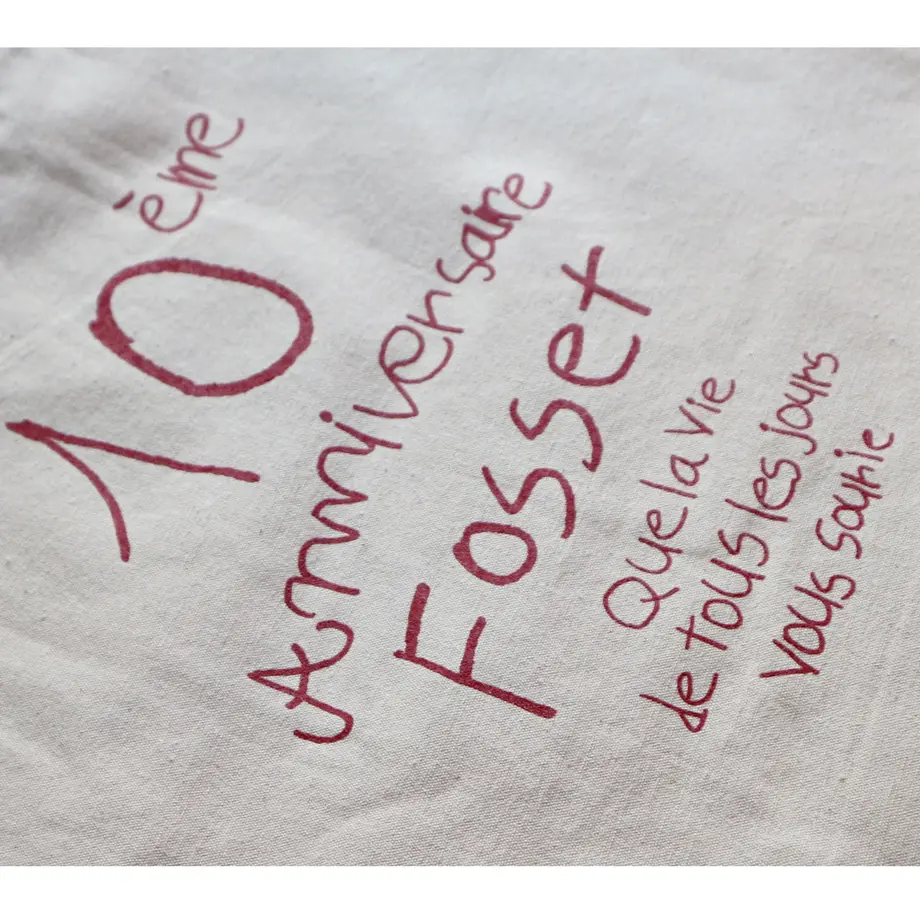 10ème
Anniversaire
Fosset
Que la vie
de tous les jours
vous sourie